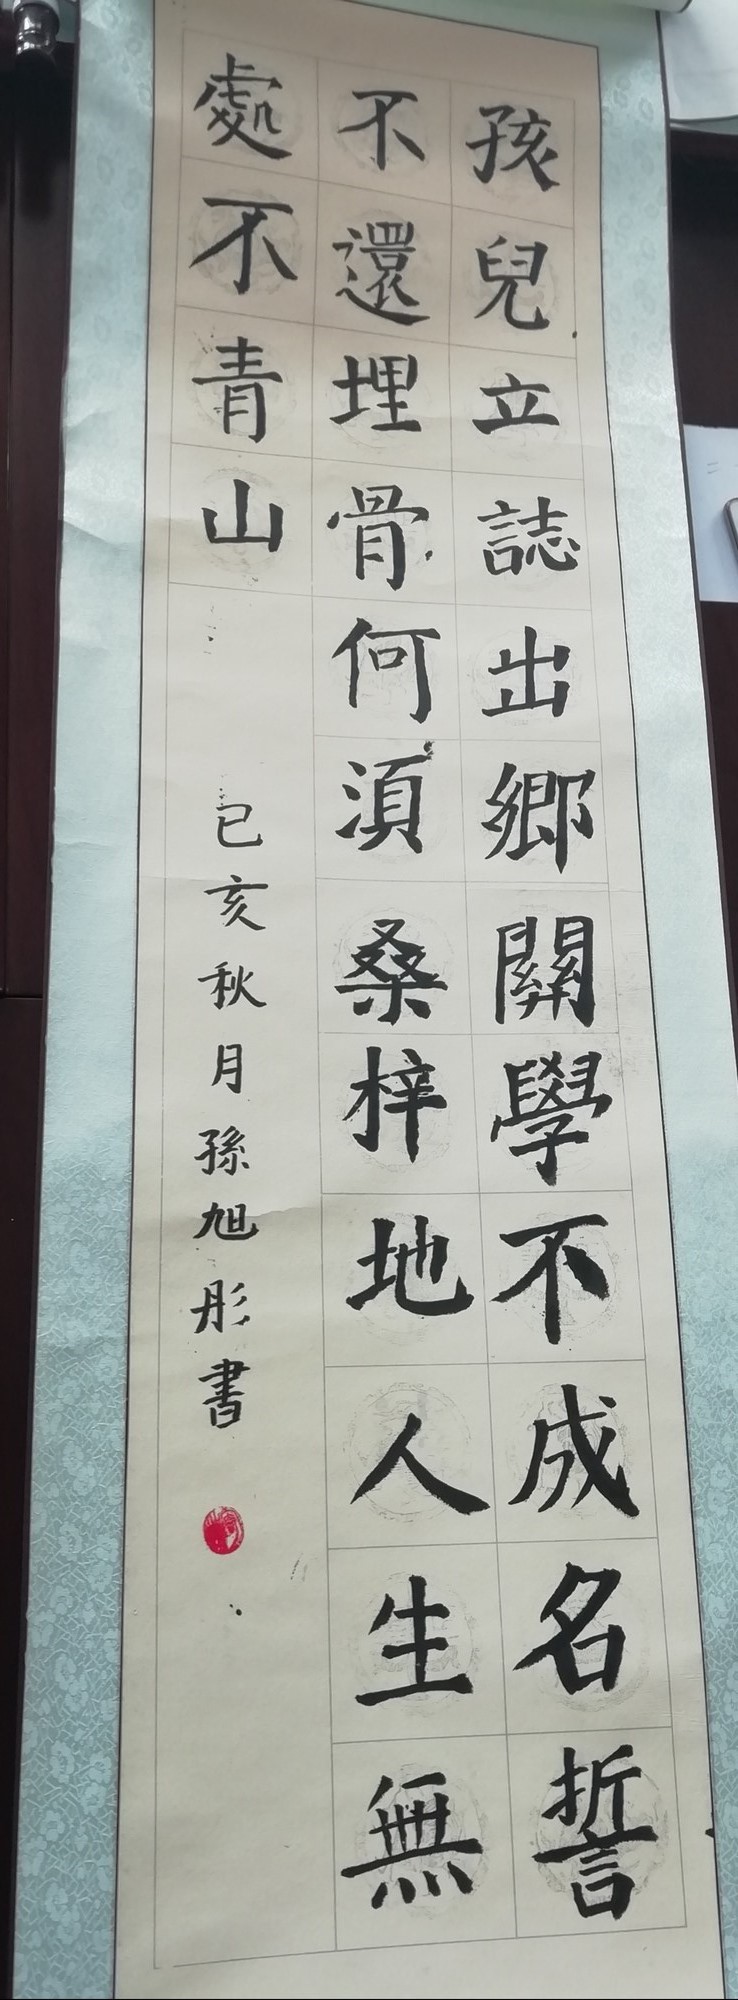 孩兒立誌出鄉關學不成名誓
不還埋骨何須桑梓地人生無
處不青山
已亥秋月孫旭彤書